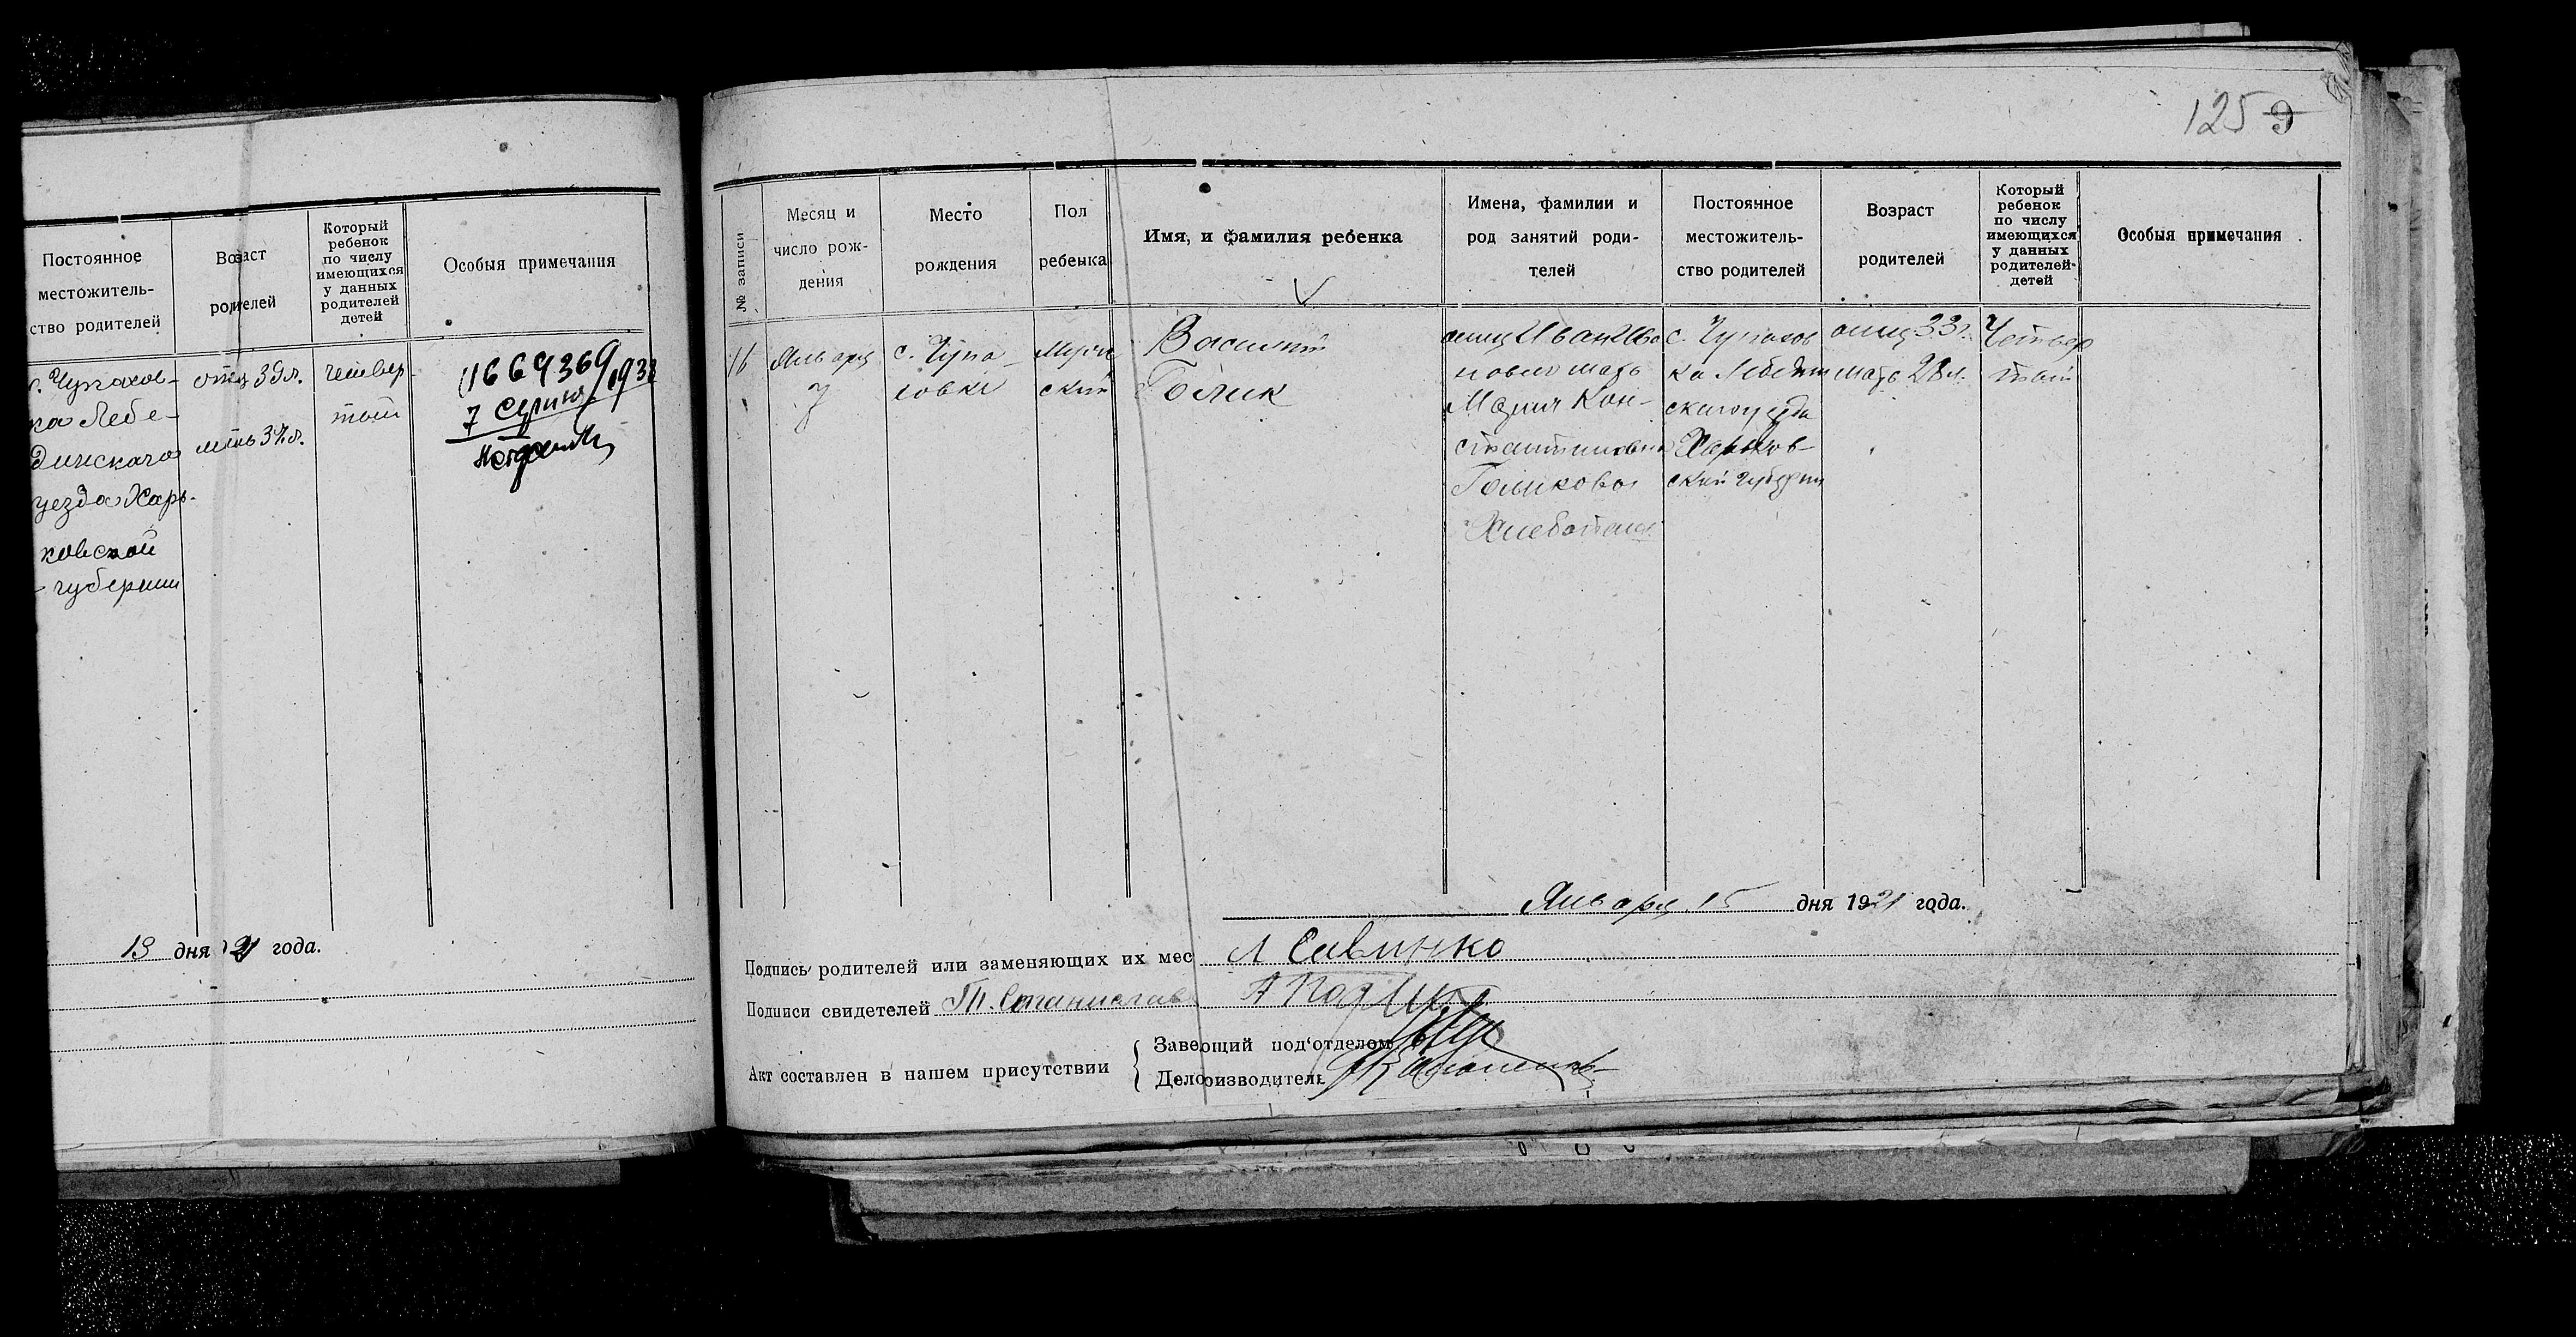 Постоянное
местожитель-
ство родителей
Возраст
родителей
Который
ребенок
по числу
имеющихся
у данных
родителей
детей
Особыя примечания
с. Чупахов-
ка Лебе-
динскаго
уезда Харь-
ковской
губернии
отец 39 л.
мать 37 л.
четвер-
тый
1669369
7 серпня 1938
13 дня 21 года.
125 9
№ записи
Месяц и
число рож-
дения
Место
рождения
Пол
ребенка
Имя, и фамилия ребенка
Имена, фамилии и
род занятий роди-
телей
Постоянное
местожитель-
ство родителей
Возраст
родителей
Который
ребенок
по числу
имеющихся
у данных
родителей-
детей
Особыя примечания
16
Января
7
с. Чупа-
ховке
Муж
ский
Василий
Голик
отец Иван Ива
нович мать
Мария Кон-
стантиновна
Голикова
Хлебопашец
с. Чупахов
ка Лебедин
скаго уезда
Харьков-
ской губернии
отец 33 г.
мать 28 л.
Четвер
тый
Января 15 дня 1921 года.
Подпись родителей или заменяющих их мес
Подписи свидетелей
Акт составлен в нашем присутствии
Завеющий под'отделом
Делоизводитель